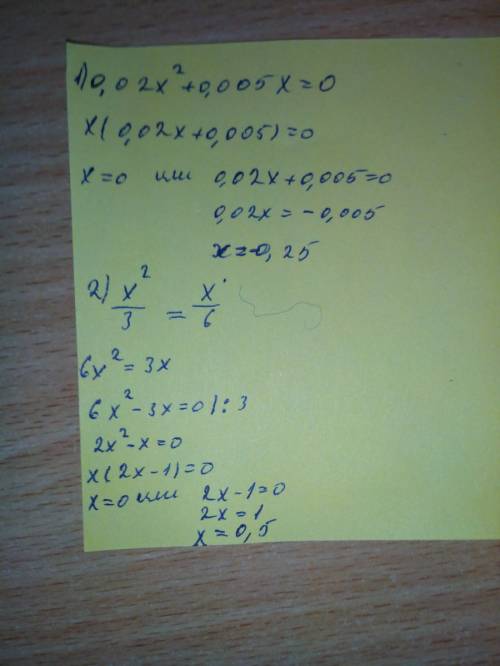 1) 0,02x²+0,005x=0
x(0,02x+0,005)=0
x=0 или 0,02x+0,005=0
0,02x=-0,005
x=-0,25
2) x²/3 = x/6
6x²=3x
6x²-3x=0 |:3
2x²-x=0
x(2x-1)=0
x=0 или 2x-1=0
2x=1
x=0,5